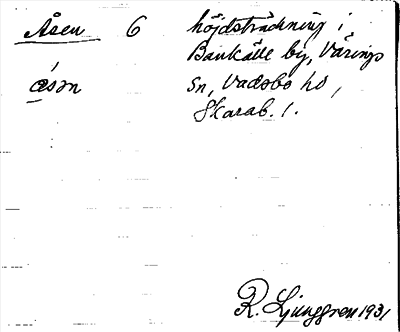 Åsen 6 höjdsträckning i
Bankälle by, Värings
åsən sn, Vadsbo hd,
Skarab. l.
R. Ljunggren 1931